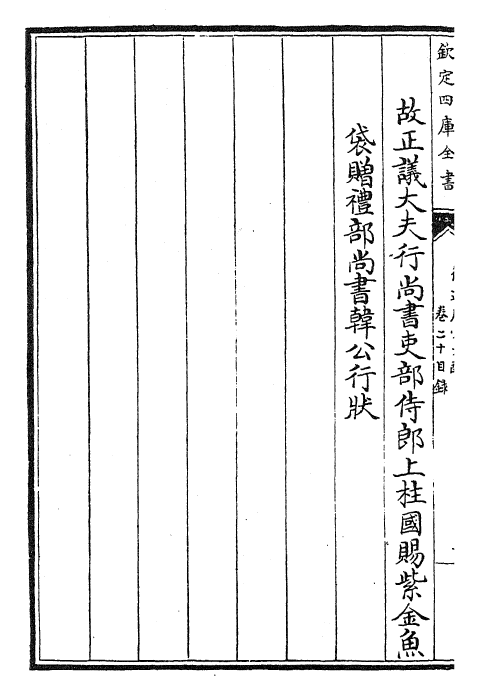 欽定四庫全書
卷二十目錄
故正議大夫行尚書吏部侍郎上柱國賜紫金魚
袋贈禮部尚書韓公行狀